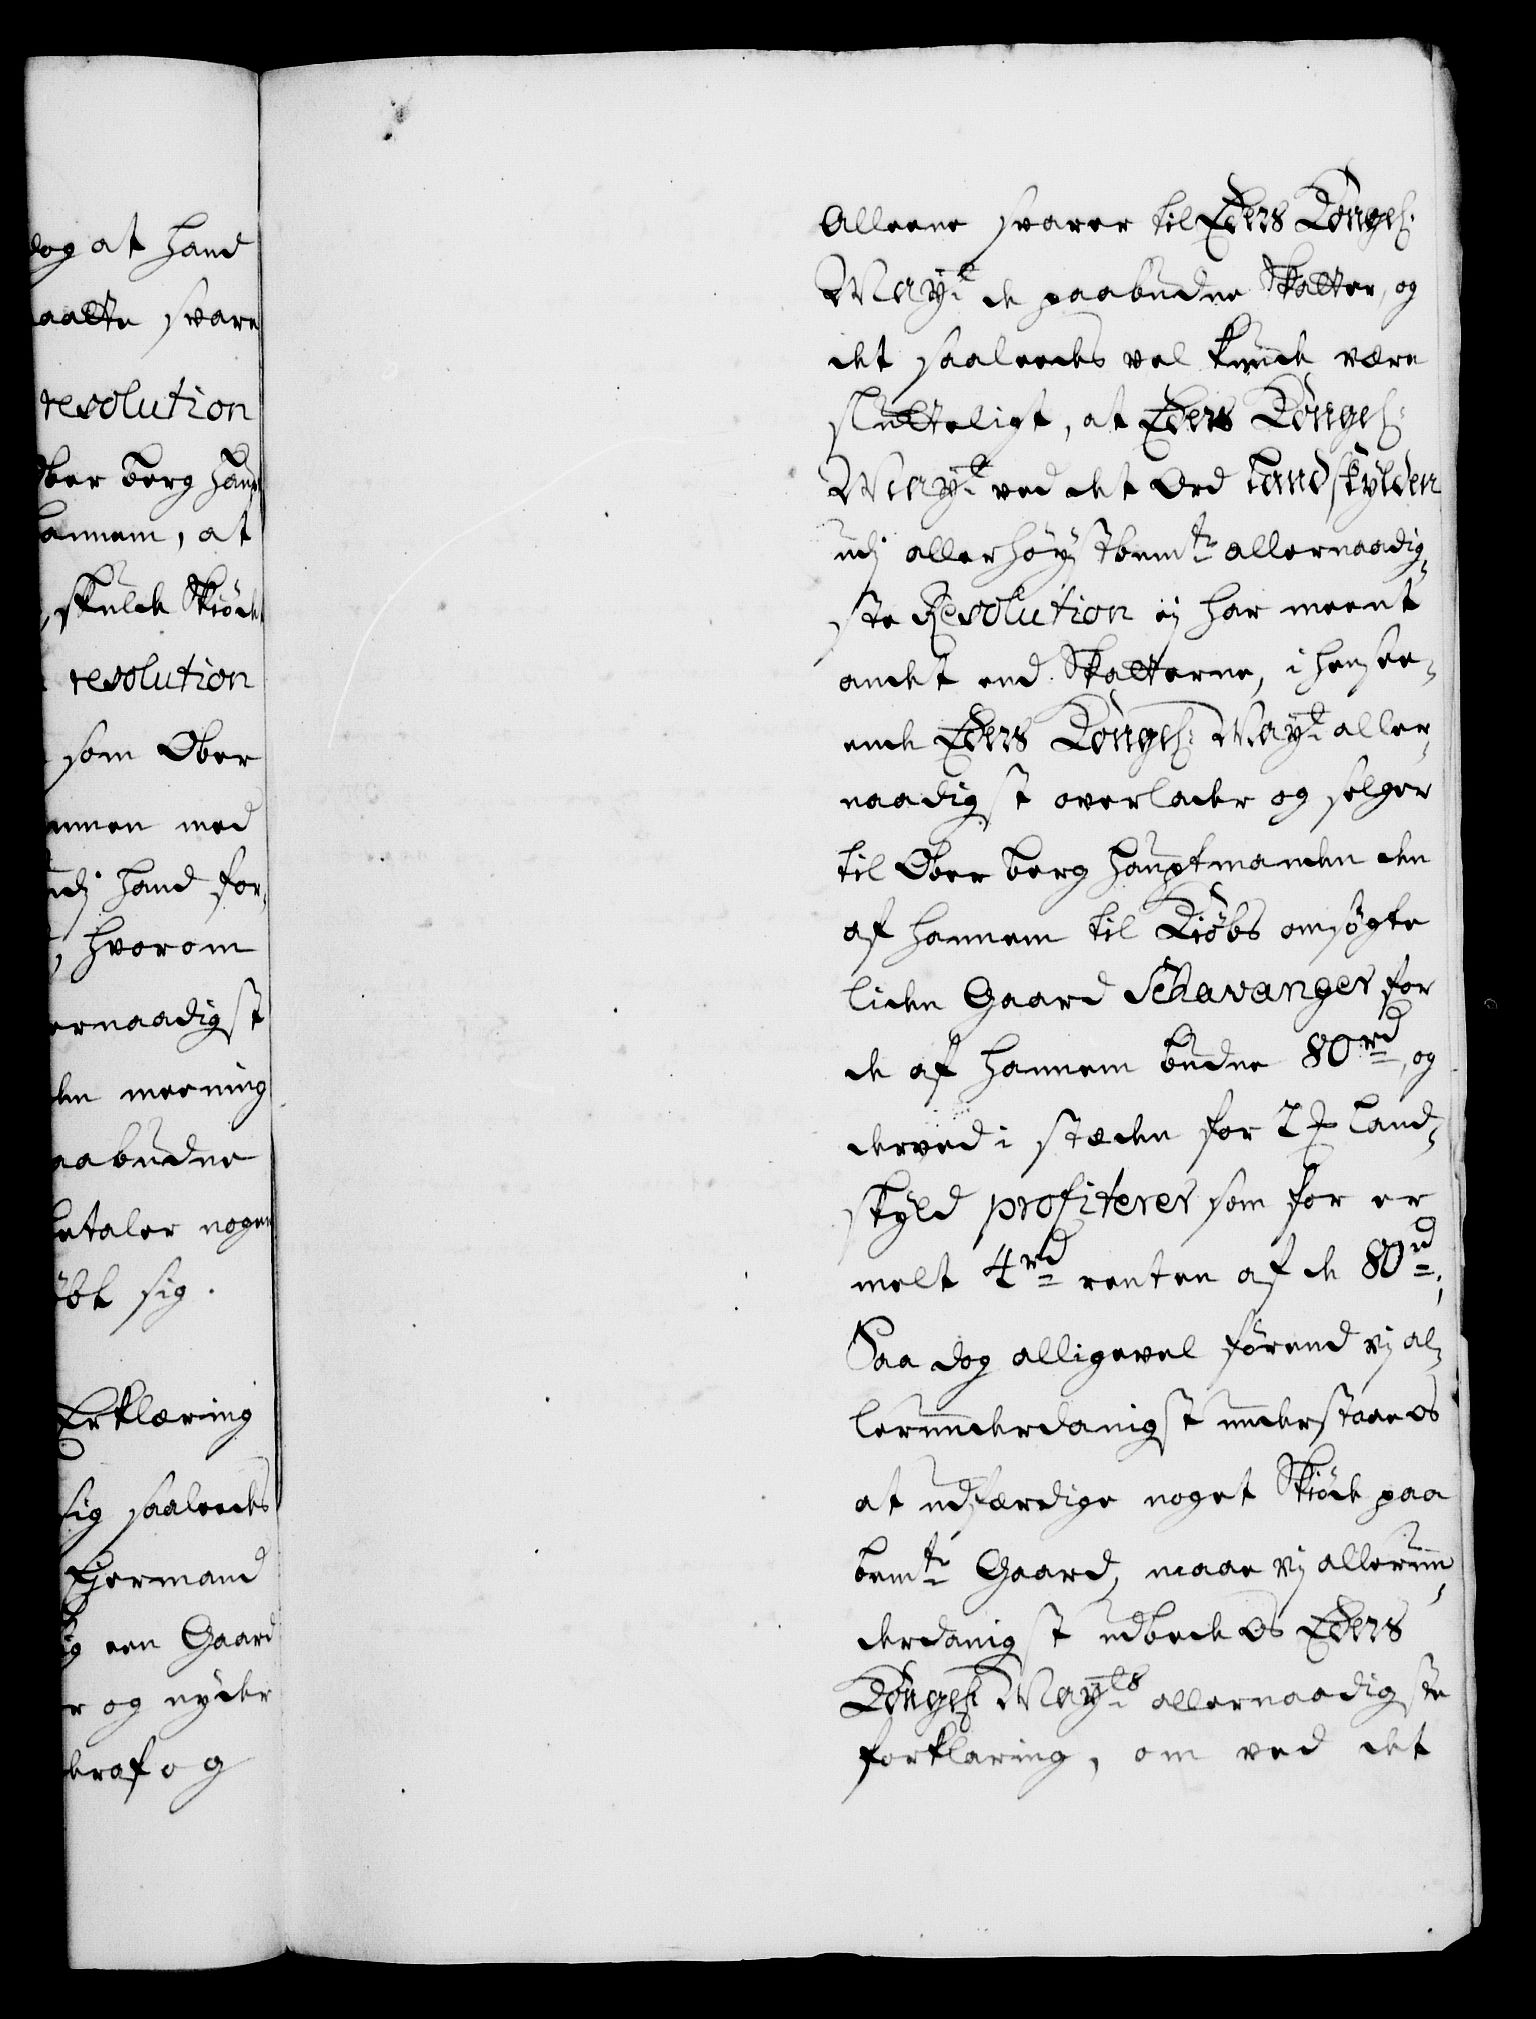 dog at hand
maatte svare
resolution
Ober berg haup
hannem, at
, skulde Skiöde
resolution
som Ober
med
udj hand for-
, hvorom
ernaadigst
den meening
aabudne
betaler nogen
sig.
Erklæring
sig saaleedes
Ejermand
sig een Gaard
r og nyder
deraf og
Alleene svarer til Eders Kongel:
Mayt de paabudne Skatter, og
det saaleedes vel kunde være
slutteligt, at Eders Kongel:
Mayt ved det Ord Landskylden
udj allerhöystbemte allernaadig-
ste Resolution ej har meent
andet end Skatterne, i hensee-
ende Eders Kongel: Mayt aller-
naadigst overlader og selger
til Ober berg hauptmanden den
af hannem til Kiöbs ansögte
liden Gaard Schavanger for
de af hannem budne 80 rd, og
derved i stæden for 2 Land-
skyld profiterer som for er
melt 4 rd renten af de 80 rd;
Saa dog alligevel förend vj al-
lerunderdanigst understaae os
at udfærdige noget Skiöde paa
bemte Gaard, maae vj allerun-
derdanigst udbede os Eders
Kongel: Mayts allernaadigste
forklaring, om ved det